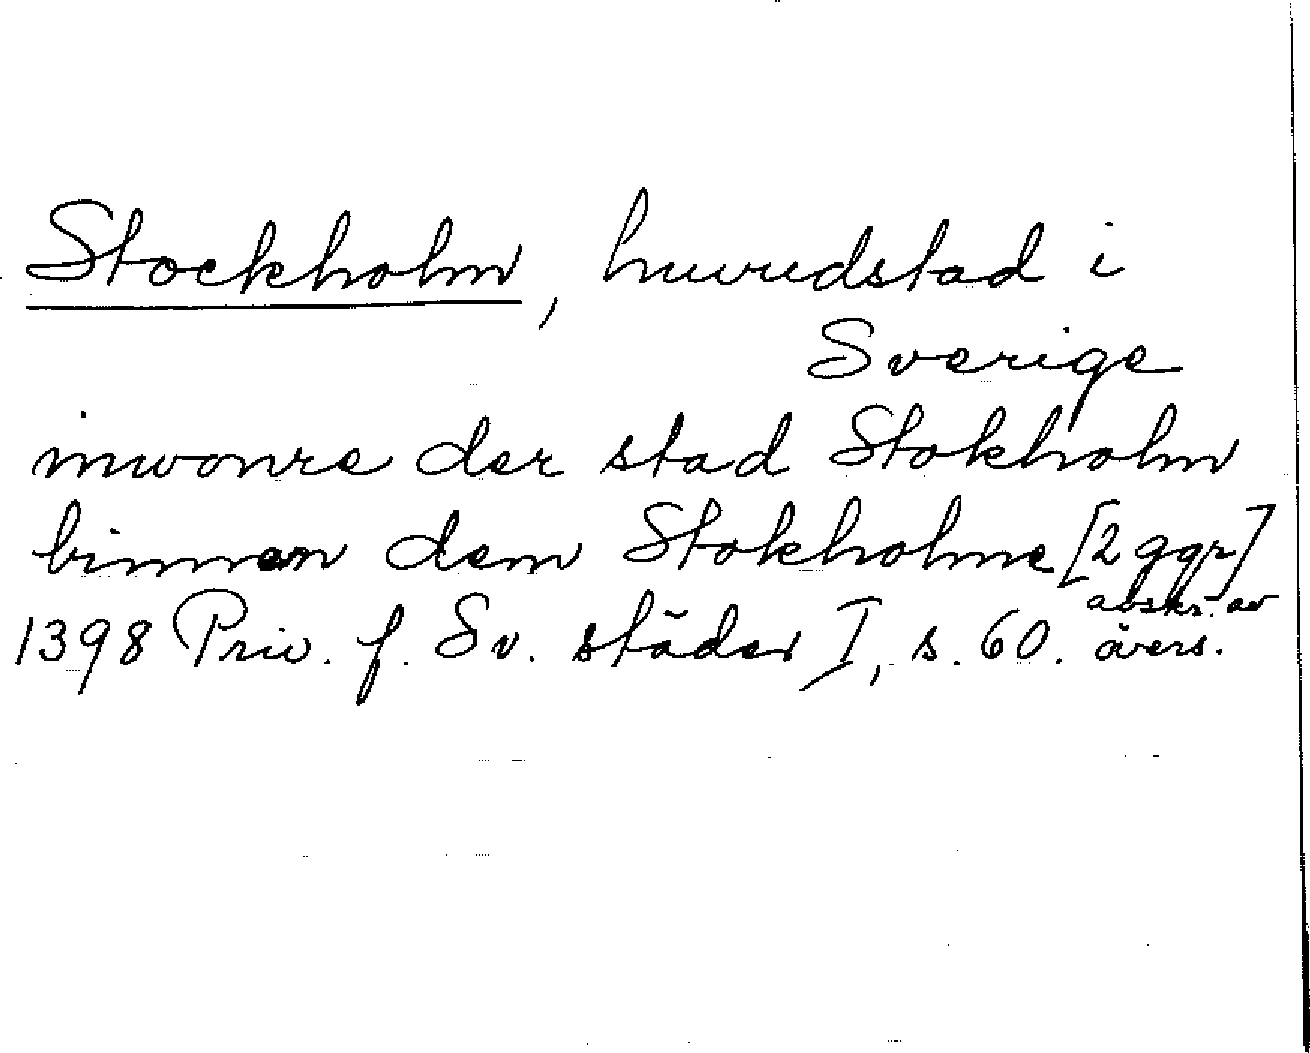 Stockholm, huvudstad i
Sverige
inwonre der stad Stokholm
binnen dem Stokholme [2 ggr]
1398 Priv. f. Sv. städer I, s. 60. avskr. av övers.